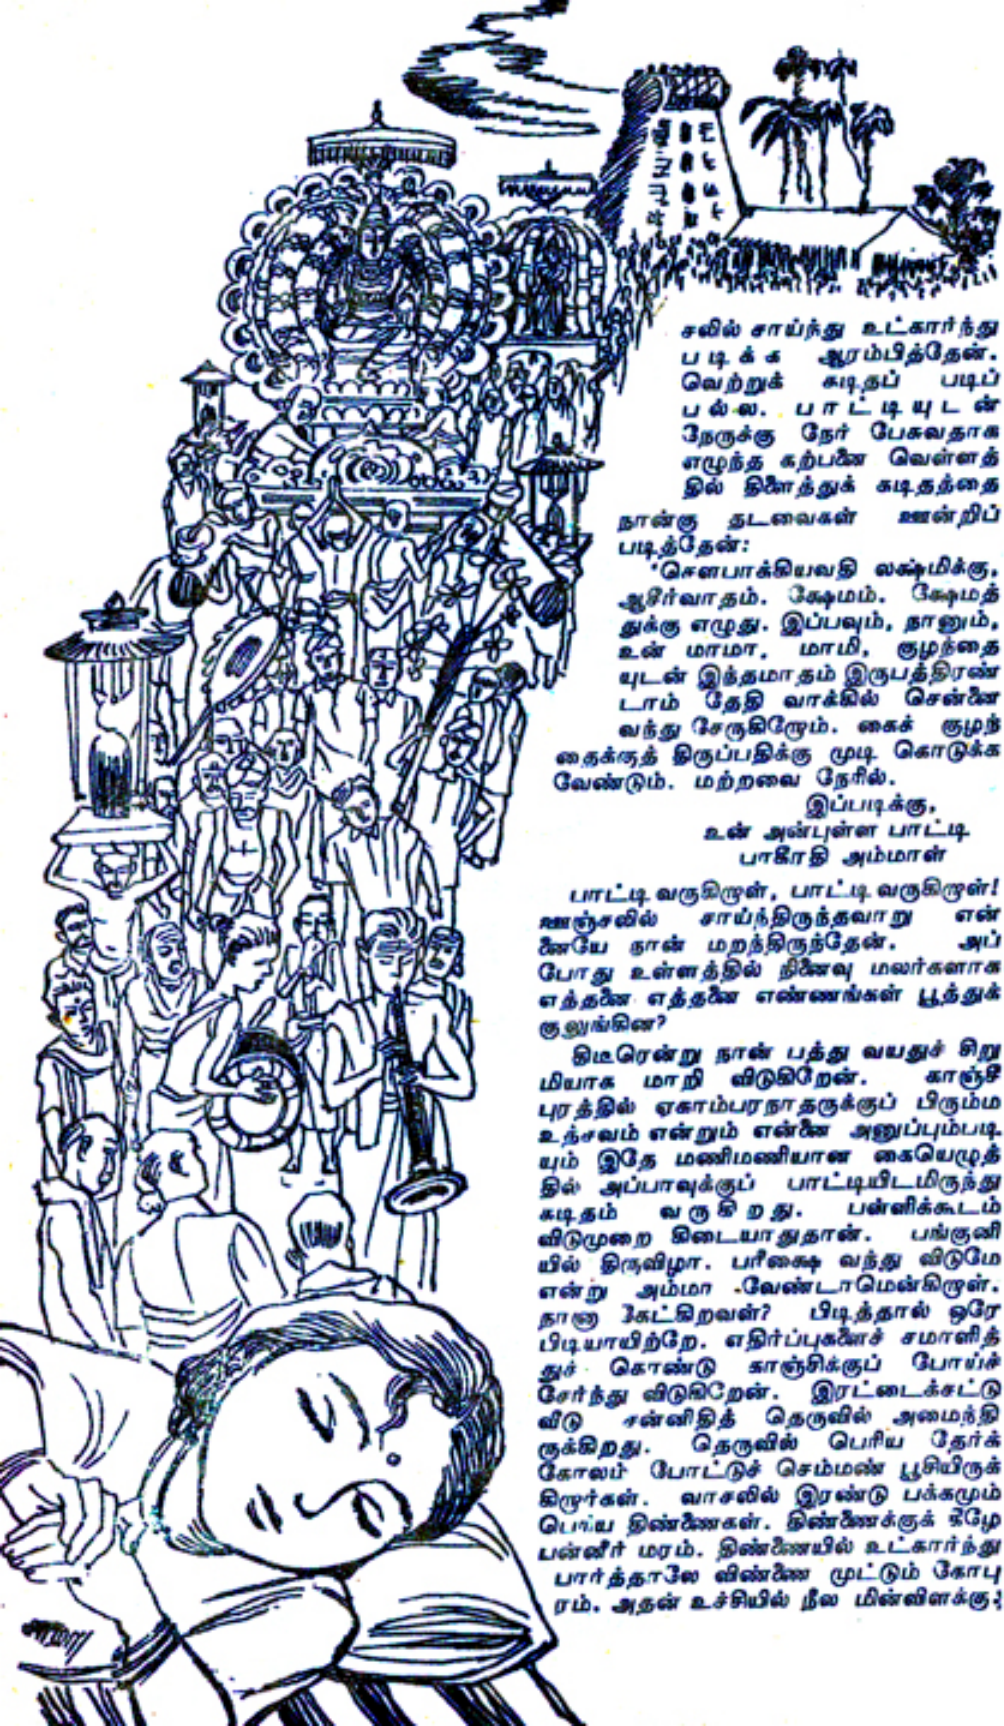 சலில் சாய்ந்து உட்கார்ந்து
படிக்க ஆரம்பித்தேன்.
வெற்றுக் கடிதப் படிப்
பல்ல. பாட்டியுடன்
நேருக்கு நேர் பேசுவதாக
எழுந்த கற்பனை வெள்ளத்
தில் திளைத்துக் கடிதத்தை
நான்கு தடவைகள் ஊன்றிப்
படித்தேன்:
'சௌபாக்கியவதி லக்ஷ்மிக்கு,
ஆசீர்வாதம். க்ஷேமம். க்ஷேமத்
துக்கு எழுது. இப்பவும், நானும்,
உன் மாமா, மாமி, குழந்தை
யுடன் இந்தமாதம் இருபத்திரண்
டாம் தேதி வாக்கில் சென்னை
வந்து சேருகிறோம். கைக் குழந்
தைக்குத் திருப்பதிக்கு முடி கொடுக்க
வேண்டும். மற்றவை நேரில்.
இப்படிக்கு,
உன் அன்புள்ள பாட்டி
பாகீரதி அம்மாள்
பாட்டி வருகிறாள், பாட்டி வருகிறாள்!
ஊஞ்சலில் சாய்ந்திருந்தவாறு என்
னையே நான் மறந்திருந்தேன். அப்
போது உள்ளத்தில் நினைவு மலர்களாக
எத்தனை எத்தனை எண்ணங்கள் பூத்துக்
குலுங்கின?
திடீரென்று நான் பத்து வயதுச் சிறு
மியாக மாறி விடுகிறேன். காஞ்சீ
புரத்தில் ஏகாம்பரநாதருக்குப் பிரும்ம
உத்சவம் என்றும் என்னை அனுப்பும்படி
யும் இதே மணிமணியான கையெழுத்
தில் அப்பாவுக்குப் பாட்டியிடமிருந்து
கடிதம் வருகிறது. பள்ளிக்கூடம்
விடுமுறை கிடையாதுதான். பங்குனி
யில் திருவிழா. பரீக்ஷை வந்து விடுமே
என்று அம்மா வேண்டாமென்கிறாள்.
நானா கேட்கிறவள்? பிடித்தால் ஒரே
பிடியாயிற்றே. எதிர்ப்புகளைச் சமாளித்
துக் கொண்டு காஞ்சிக்குப் போய்ச்
சேர்ந்து விடுகிறேன். இரட்டைக்கட்டு
வீடு சன்னிதித் தெருவில் அமைந்தி
ருக்கிறது. தெருவில் பெரிய தேர்க்
கோலம் போட்டுச் செம்மண் பூசியிருக்
கிறார்கள். வாசலில் இரண்டு பக்கமும்
பெரிய திண்ணைகள். திண்ணைக்குக் கீழே
பன்னீர் மரம். திண்ணையில் உட்கார்ந்து
பார்த்தாலே விண்ணை முட்டும் கோபு
ரம். அதன் உச்சியில் நீல மின்விளக்கு;